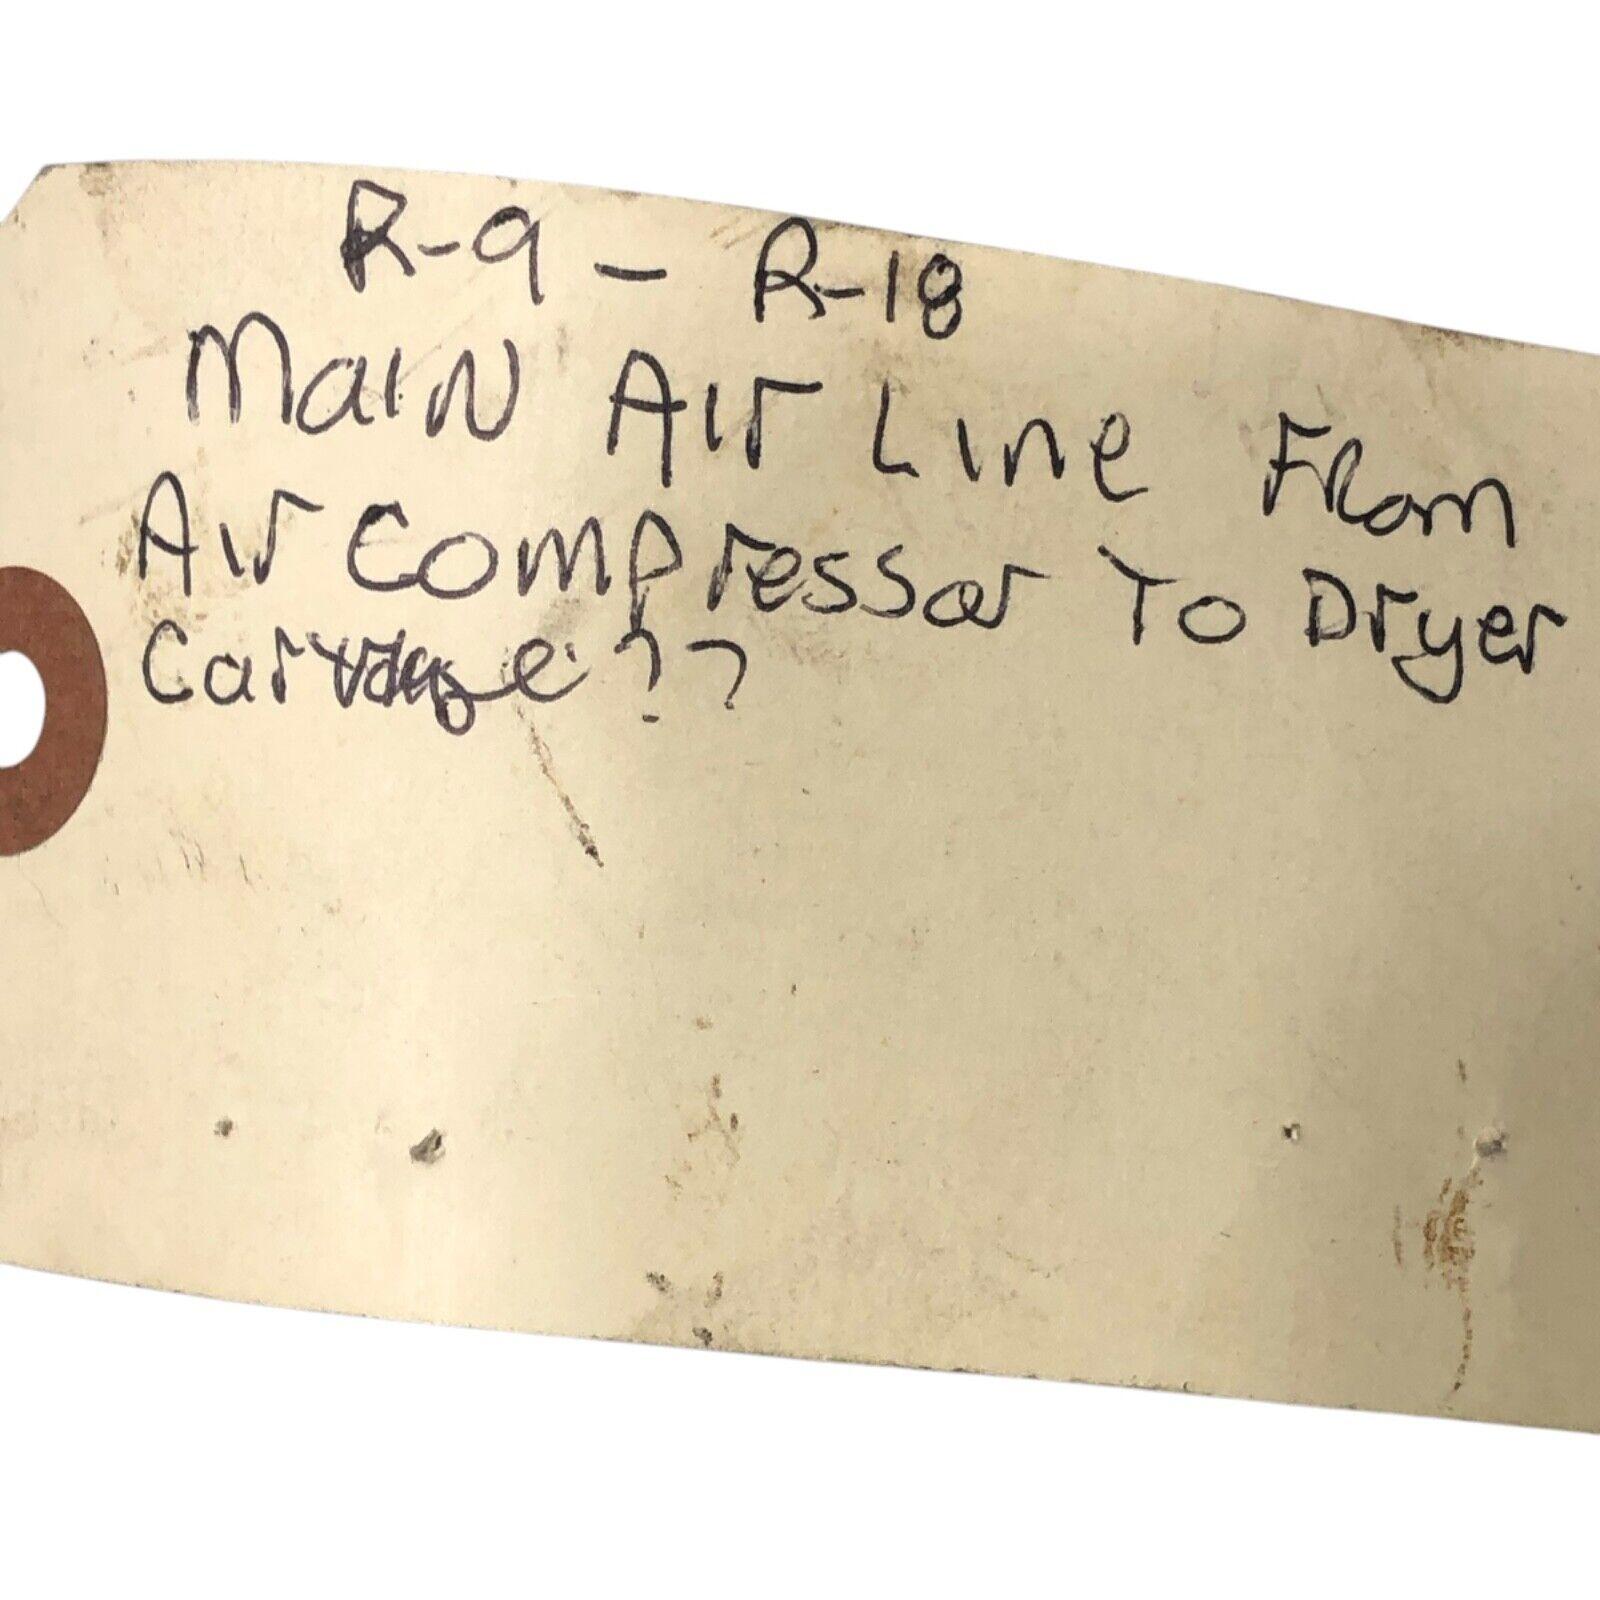 R-9 - R-18
Main Air Line From
Air Compressor To Dryer
??